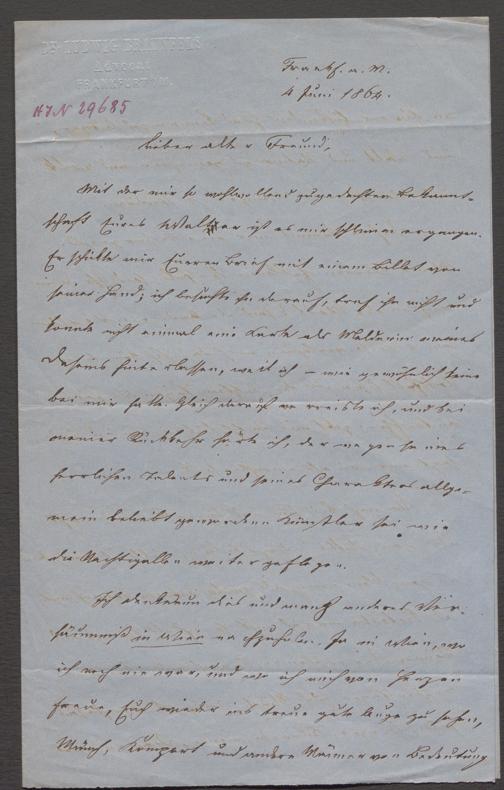 DR LUDWIG BRAUNFELS
Advocat
FRANKFURT a/M.
HIN 29685
Frankf. a. M.
4 Juni 1864.
Lieber alter Freund,
Mit der mir so wohlwollend zugedachten Bekannt-
schaft Eures Walter ist es mir schlimm ergangen.
Er schickte mir Eueren Brief mit einem Billet von
seiner Hand; ich besuchte ihn darauf, traf ihn nicht und
konnte nicht einmal eine Karte als Melderin meines
Daseins hinterlassen, weil ich – wie gewöhnlich keine
bei mir hatte. Gleich darauf verreiste ich, und bei
meiner Rückkehr hörte ich, der wegen seines
herrlichen Talents und seines Charakters allge-
mein beliebt gewordene Künstler sei wie
die Nachtigallen weiter geflogen.
Ich denke nun dies und manch anderes Ver-
säumniß in Wien nachzuholen. Ja in Wien, wo
ich noch nie war, und wo ich mich von Herzen
freue, Euch wieder ins treue gute Auge zu sehen,
Münch, Kompert und andere Männer von Bedeutung